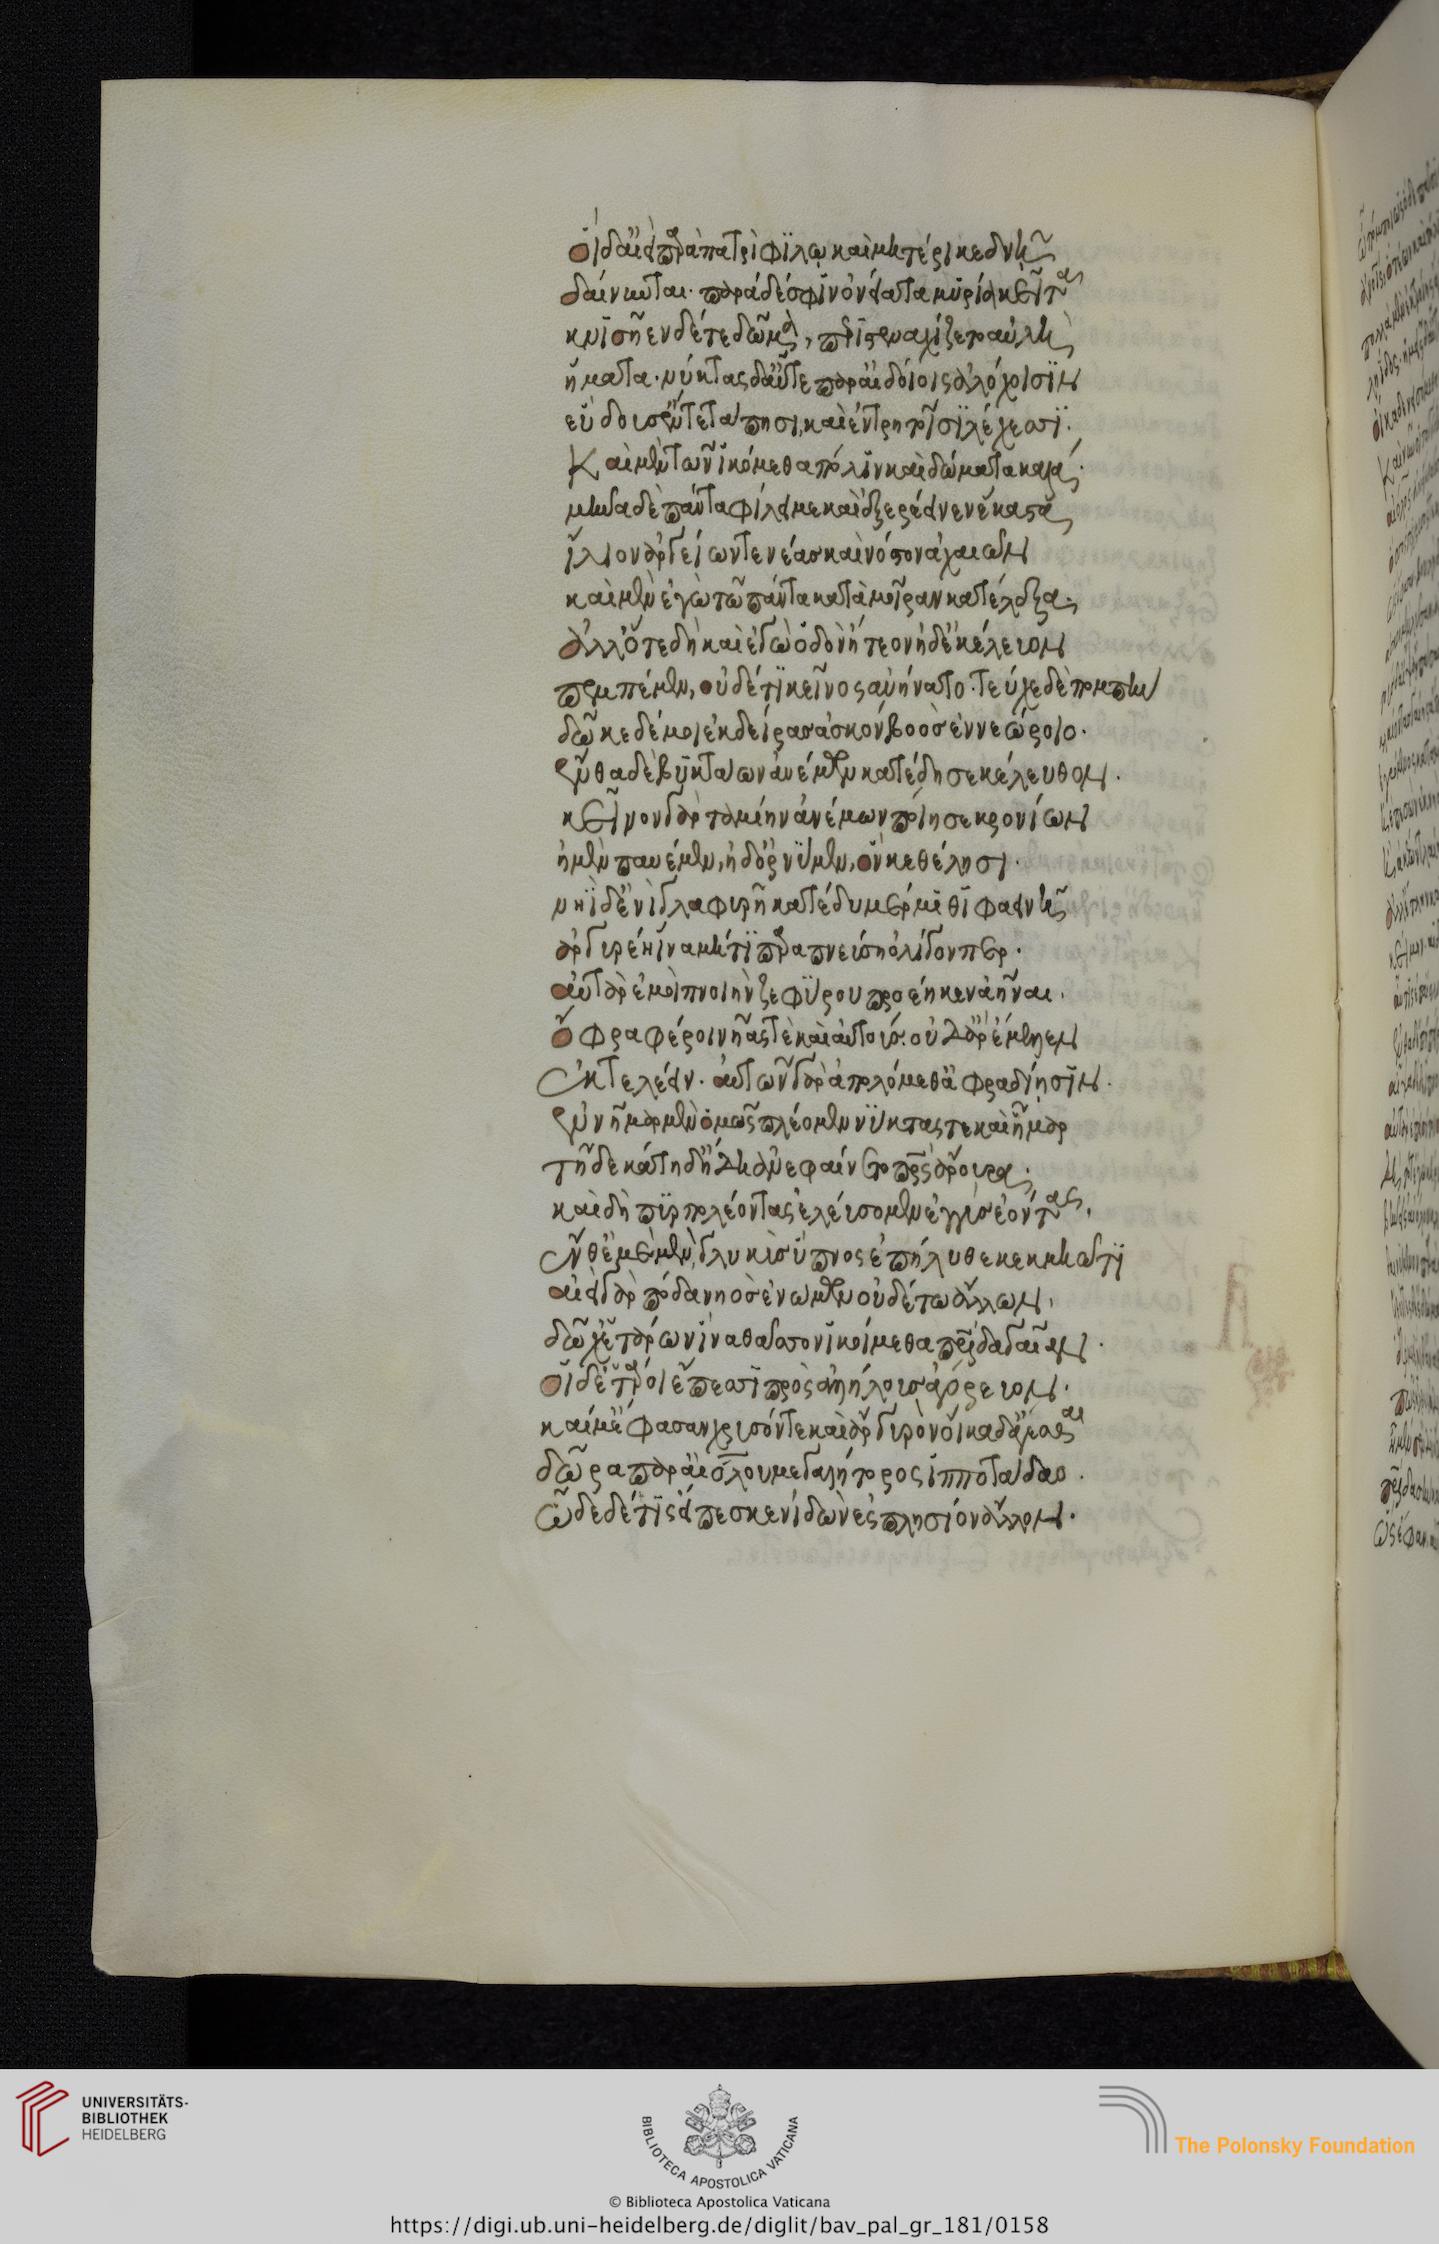 οἱ δ' αἰεὶ παρὰ πατρὶ φίλῳ καὶ μητέρι κεδνῇ
δαίνυνται· παρὰ δέ σφιν ὀνείατα μυρία κεῖται
κνισῆεν δέ τε δῶμα, περιστεναχίζεται αὐλῇ
ἤματα· νύκτας δ' αὖτε παρ' αἰδοίοις ἀλόχοισιν
εὕδουσ' ἔν τε τάπησι, καὶ ἐν τρητοῖσι λέχεσσι.
Καὶ μὲν τῶν ἱκόμεθα πόλιν καὶ δώματα καλά·
μῆνα δὲ πάντα φίλει με καὶ ἐξερέεινεν ἕκαστα
ἴλιον ἀργείων τε νέας καὶ νόστον ἀχαιῶν
καὶ μὲν ἐγὼ τῷ πάντα κατὰ μοῖραν κατέλεξα·
ἀλλ' ὅτε δὴ καὶ ἐγὼ ὁδὸν ᾔτεον ἠδ' ἐκέλευον
πεμπέμεν, οὐδέ τι κεῖνος ἀνήνατο· τεῦχε δὲ πομπήν
δῶκε δέ μοι ἐκδείρας ἀσκὸν βοὸς ἐννεώροιο·
ἔνθα δὲ βυκτάων ἀνέμων κατέδησε κέλευθον·
κεῖνον γὰρ ταμίην ἀνέμων ποίησε κρονίων
ἠμὲν παυέμεν, ἠδ' ὀρνύμεν, ὅν κ' ἐθέλησι·
νηῒ δ' ἐνὶ γλαφυρῇ κατέδει μέρμιθι φαεινῇ
ἀργυρέῃ ἵνα μή τι παραπνεύσῃ ὀλίγον περ·
αὐτὰρ ἐμοὶ πνοιὴν ζεφύρου προέηκεν ἀῆναι,
ὄφρα φέροι νῆάς τε καὶ αὐτούς· οὐδ' ἄρ' ἔμελλεν
ἐκτελέειν· αὐτῶν γὰρ ἀπολόμεθ' ἀφραδίῃσιν·
ἐννῆμαρ μὲν ὁμῶς πλέομεν νύκτας τε καὶ ἦμαρ
τῇ δεκάτῃ δ' ἤδη ἀνεφαίνετο πατρὶς ἄρουρα·
καὶ δὴ πυρπολέοντας ἐλεύσομεν ἐγγὺς ἐόντας,
ἔνθ' ἐμὲ μὲν γλυκὺς ὕπνος ἐπήλυθε κεκμηῶτι
αἰεὶ γὰρ πόδα νηὸς ἐνώμων οὐδέ τῳ ἄλλων,
δῶχ' ἑτάρων ἵνα θᾶσσον ἱκοίμεθα πατρίδα γαῖαν·
οἱ δ' ἕταροι ἔπεσσι πρὸς ἀλλήλους ἀγόρευον·
καί μ' ἔφασαν χρυσόν τε καὶ ἄργυρον οἴκαδ' ἄγεσθαι
δῶρα παρ' αἰόλου μεγαλήτορος ἱπποτάδαο.
ὧδε δέ τις εἴπεσκεν ἰδὼν ἐς πλησίον ἄλλον·
UNIVERSITÄTS-
BIBLIOTHEK
HEIDELBERG
BIBLIOTECA APOSTOLICA VATICANA
The Polonsky Foundation
© Biblioteca Apostolica Vaticana
https://digi.ub.uni-heidelberg.de/diglit/bav_pal_gr_181/0158